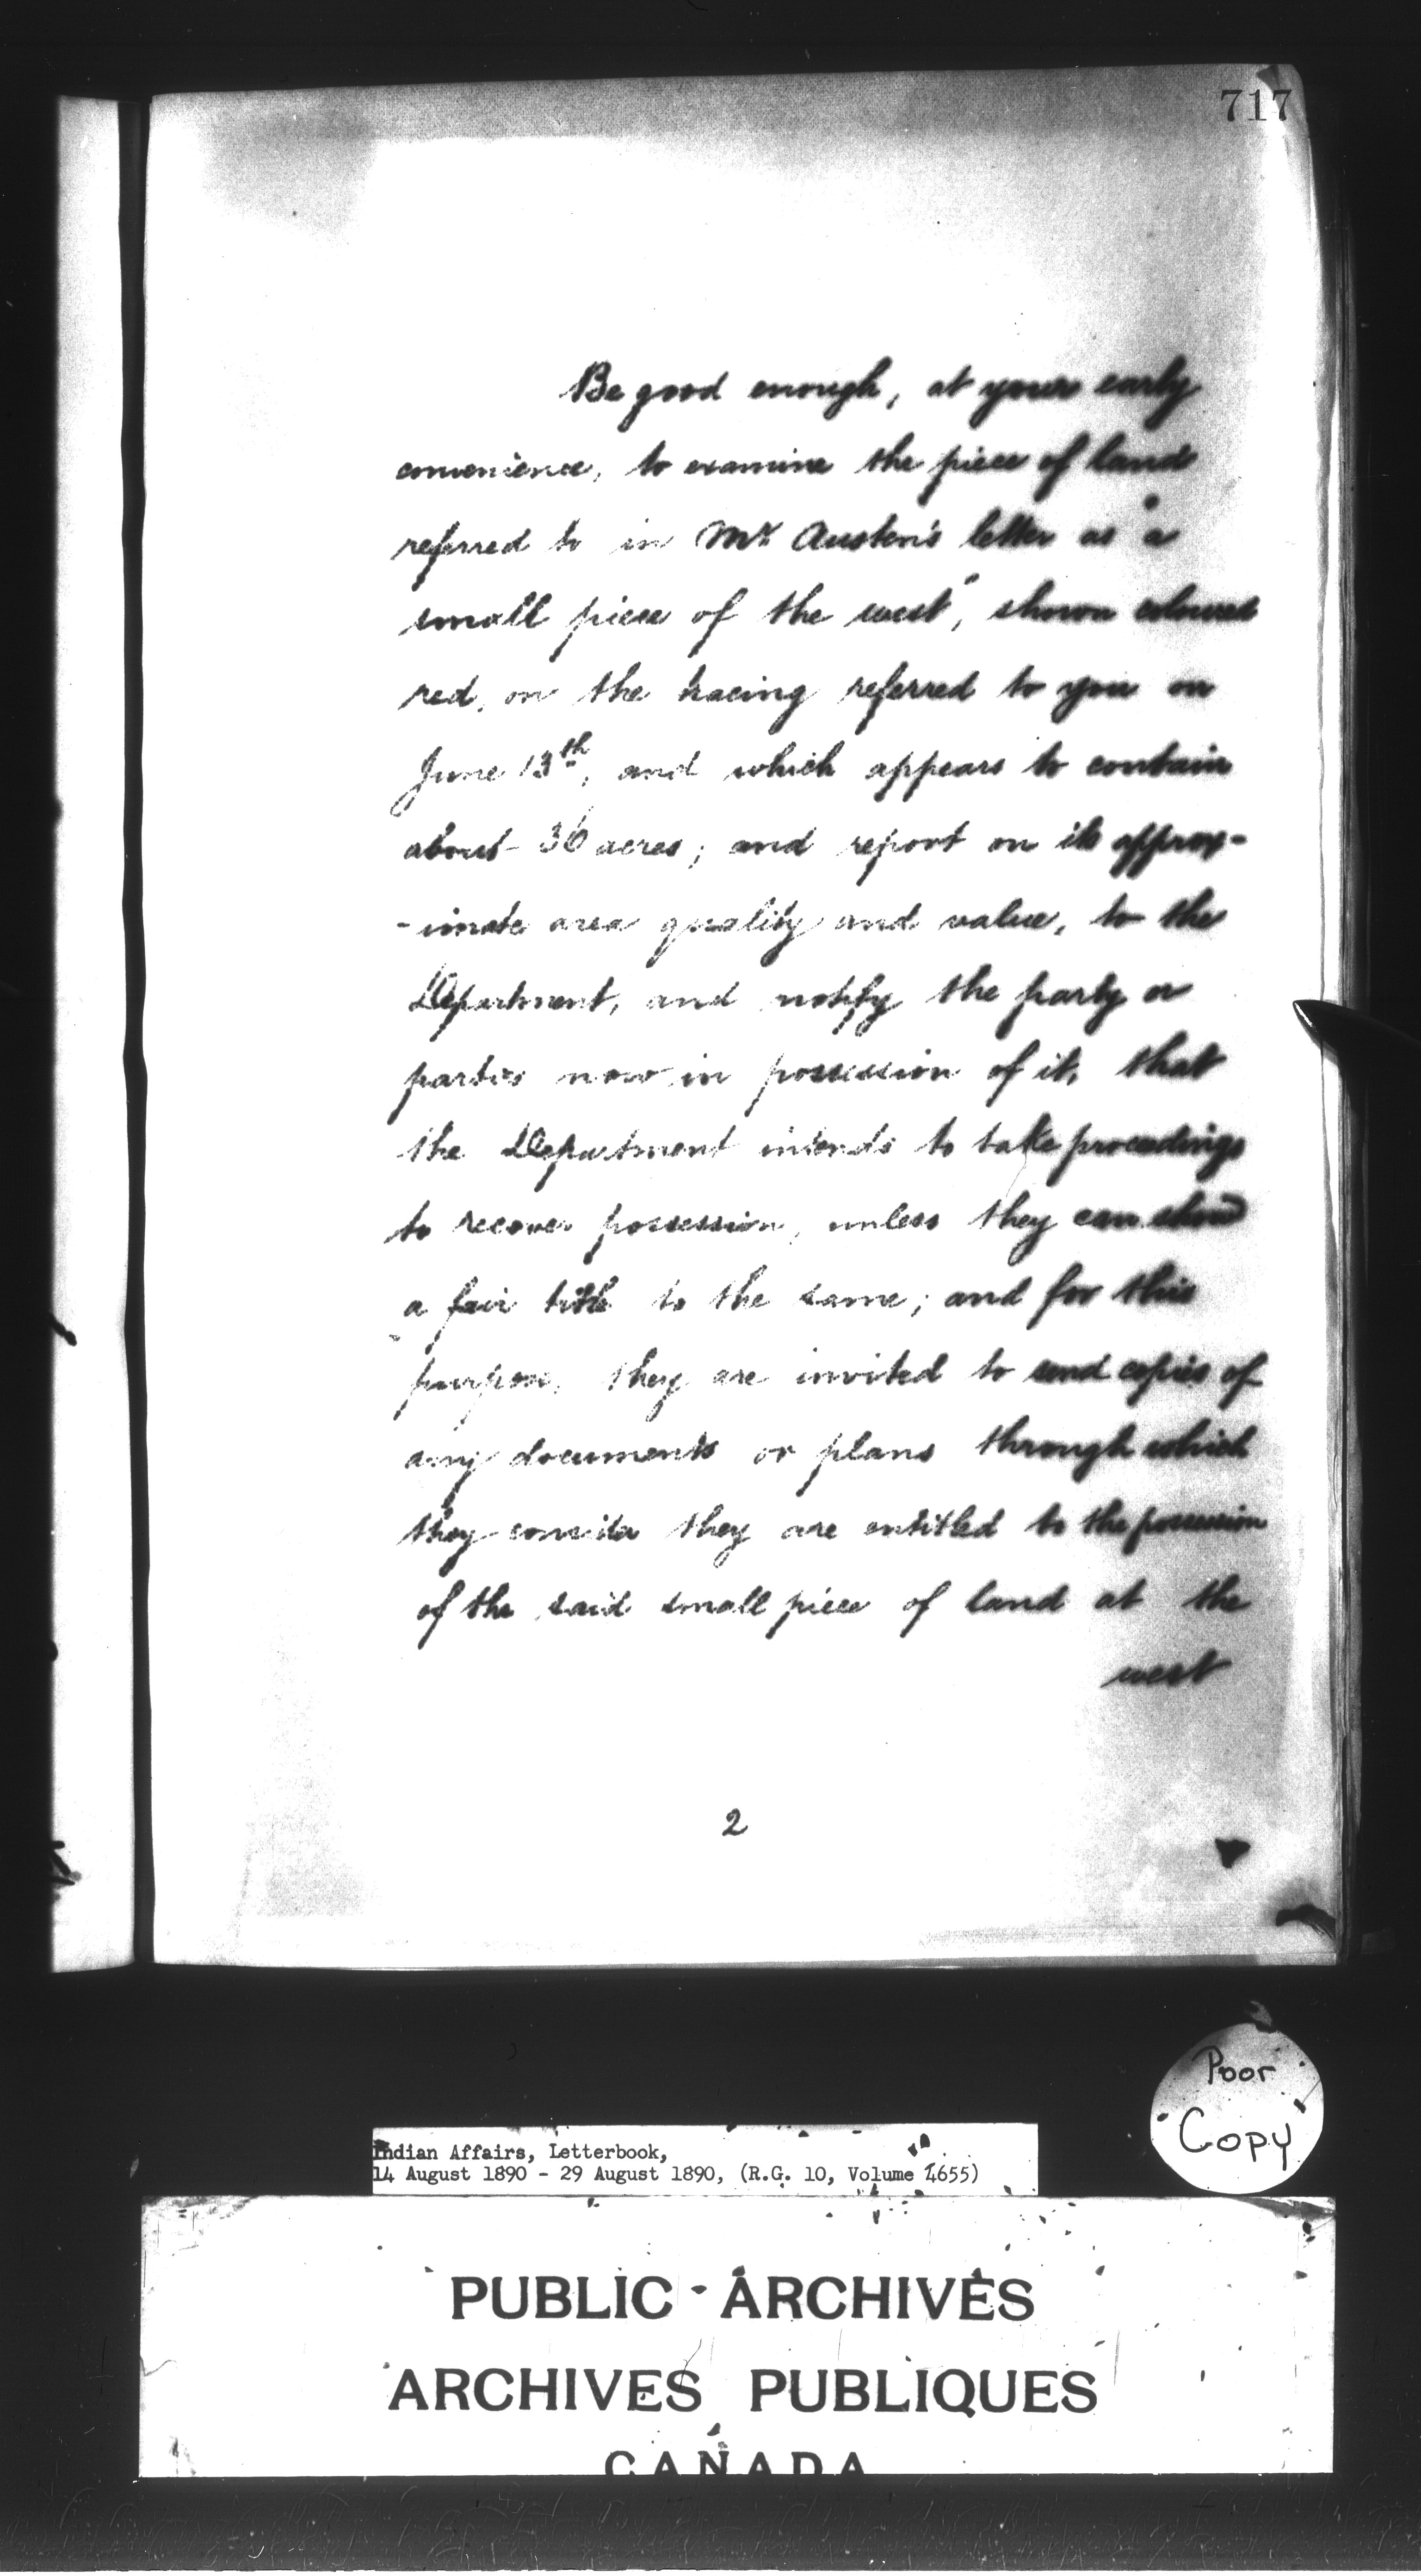 717
Be good enough, at your early
convenience, to examine the piece of land
referred to in Mr. Austen's letter as "a
small piece of the west", shown coloured
red, on the tracing referred to you on
June 13th, and which appears to contain
about 36 acres; and report on its approx-
-imate area quality and value, to the
Department, and notify the party or
parties now in possession of it, that
the Department intends to take proceedings
to recover possession, unless they can show
a fair title to the same; and for this
purpose, they are invited to send copies of
any documents or plans through which
they consider they are entitled to the possession
of the said small piece of land at the
west
2
Poor
Copy
Indian Affairs, Letterbook,
14 August 1890 - 29 August 1890, (R.G. 10, Volume 4655)
PUBLIC ARCHIVES
ARCHIVES PUBLIQUES
CANADA